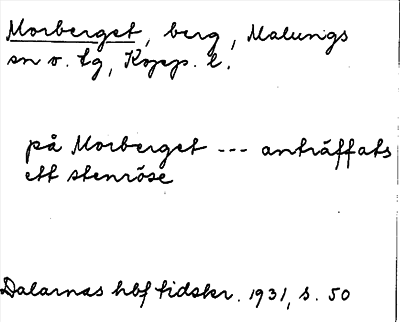 Morberget, berg, Malungs
sn o. tg, Kopp. l.
på Morberget --- anträffats
ett stenröse
Dalarnas hbf tidskr. 1931, s. 50